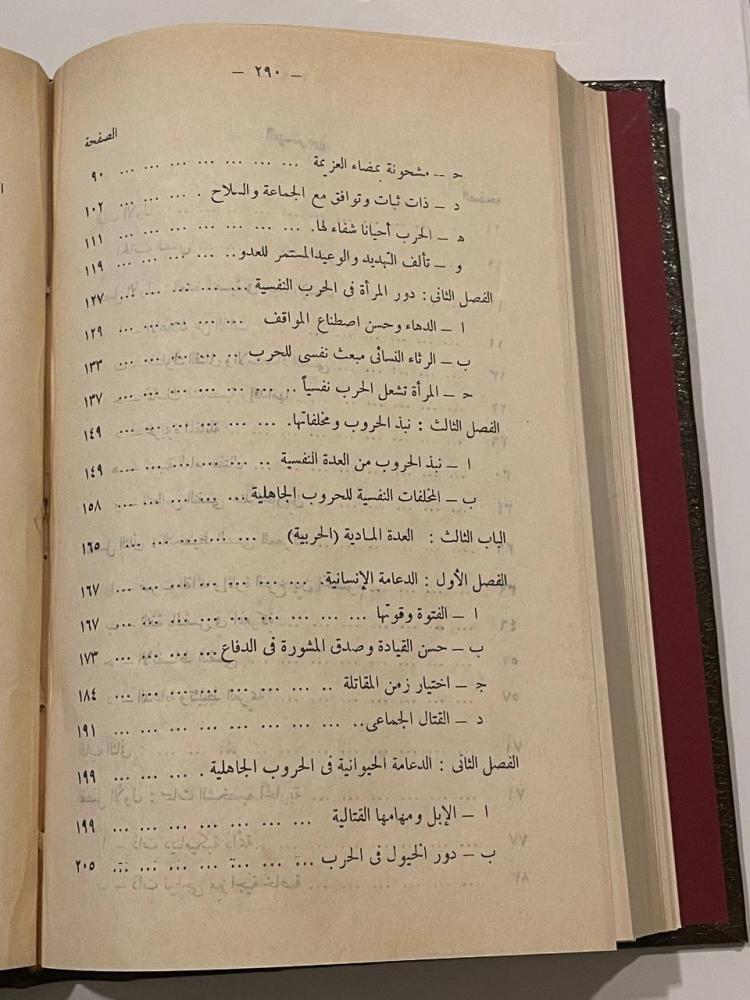 — ٢٩٠ —
الصفحة
حـ — مشحونة بمضاء العزيمة ... ... ... ... ... ... ... ٩٠
د — ذات ثبات وتوافق مع الجماعة والسلاح . ... ... ... ... ١٠٢
ه — الحرب أحيانا شفاء لها. ... ... ... ... ... ... ... ١١١
و — تآلف التهديد والوعيد المستمر للعدو .. ... ... ... ... ١١٩
الفصل الثانى : دور المرأة فى الحرب النفسية ... ... ... ... ... ١٢٧
ا — الدهاء وحسن اصطناع المواقف ... ... ... ... ... ... ١٢٩
ب — الرثاء النسائى مبعث نفسى للحرب .. ... ... ... ... ... ١٣٣
حـ — المرأة تشعل الحرب نفسياً .. ... ... ... ... ... ... ١٣٧
الفصل الثالث : نبذ الحروب ومخلفاتها. ... ... ... ... ... ... ١٤٩
ا — نبذ الحروب من العدة النفسية .. ... ... ... ... ... ١٤٩
ب — المخلفات النفسية للحروب الجاهلية ... ... ... ... ... ١٥٨
الباب الثالث : العدة المادية (الحربية) ... ... ... ... ... ... ١٦٥
الفصل الأول : الدعامة الإنسانية. ... ... ... ... ... ... ... ١٦٧
ا — الفتوة وقوتها ... ... ... ... ... ... ... ... ... ١٦٧
ب — حسن القيادة وصدق المشورة فى الدفاع ... ... ... ... ١٧٣
جـ — اختيار زمن المقاتلة .. ... ... ... ... ... ... ... ١٨٤
د — القتال الجماعى .. ... ... ... ... ... ... ... ... ١٩١
الفصل الثانى : الدعامة الحيوانية فى الحروب الجاهلية . ... ... ... ١٩٩
ا — الإبل ومهامها القتالية ... ... ... ... ... ... ... ... ١٩٩
ب — دور الخيول فى الحرب ... ... ... ... ... ... ... ... ٢٠٥